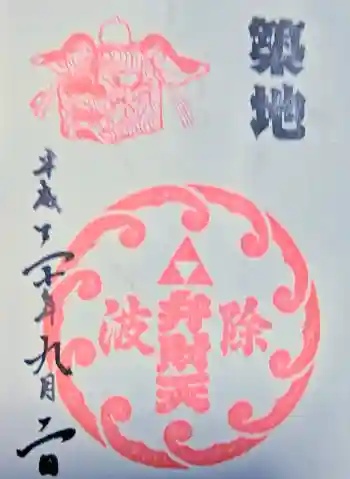 築地
除
弁財天
波
平成二十年九月二日